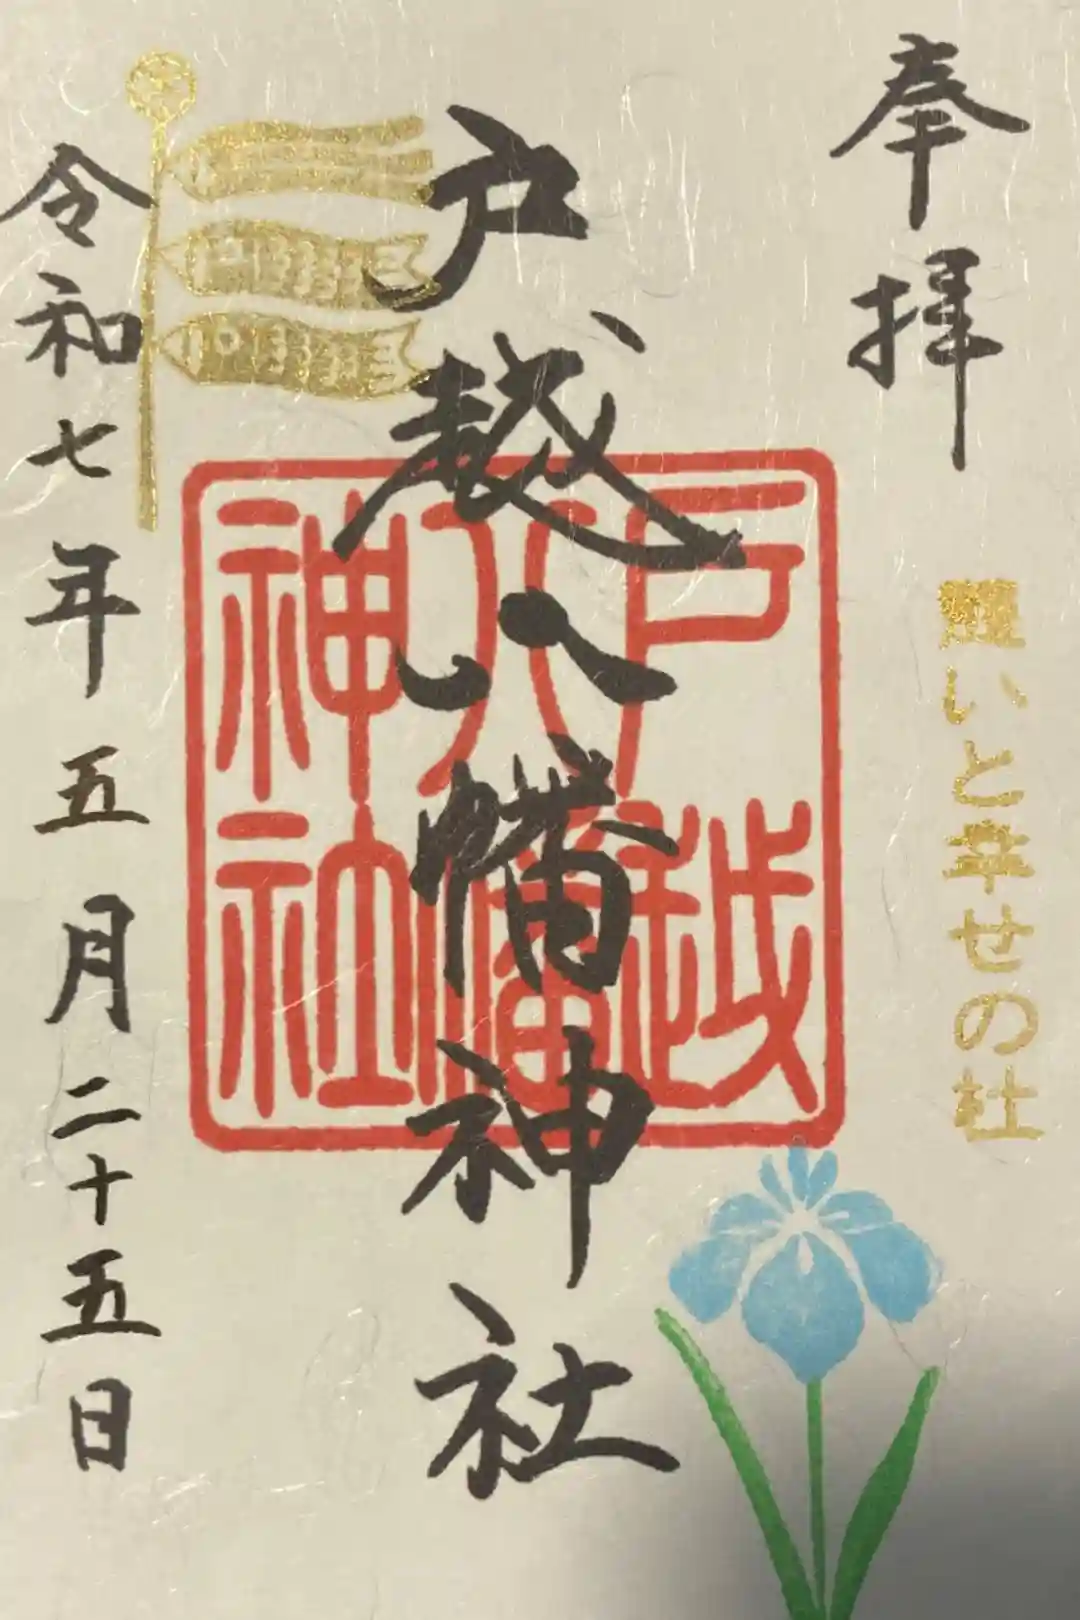 奉拝
願いと幸せの社
戸越八幡神社
戸越
八幡
神社
令和七年五月二十五日